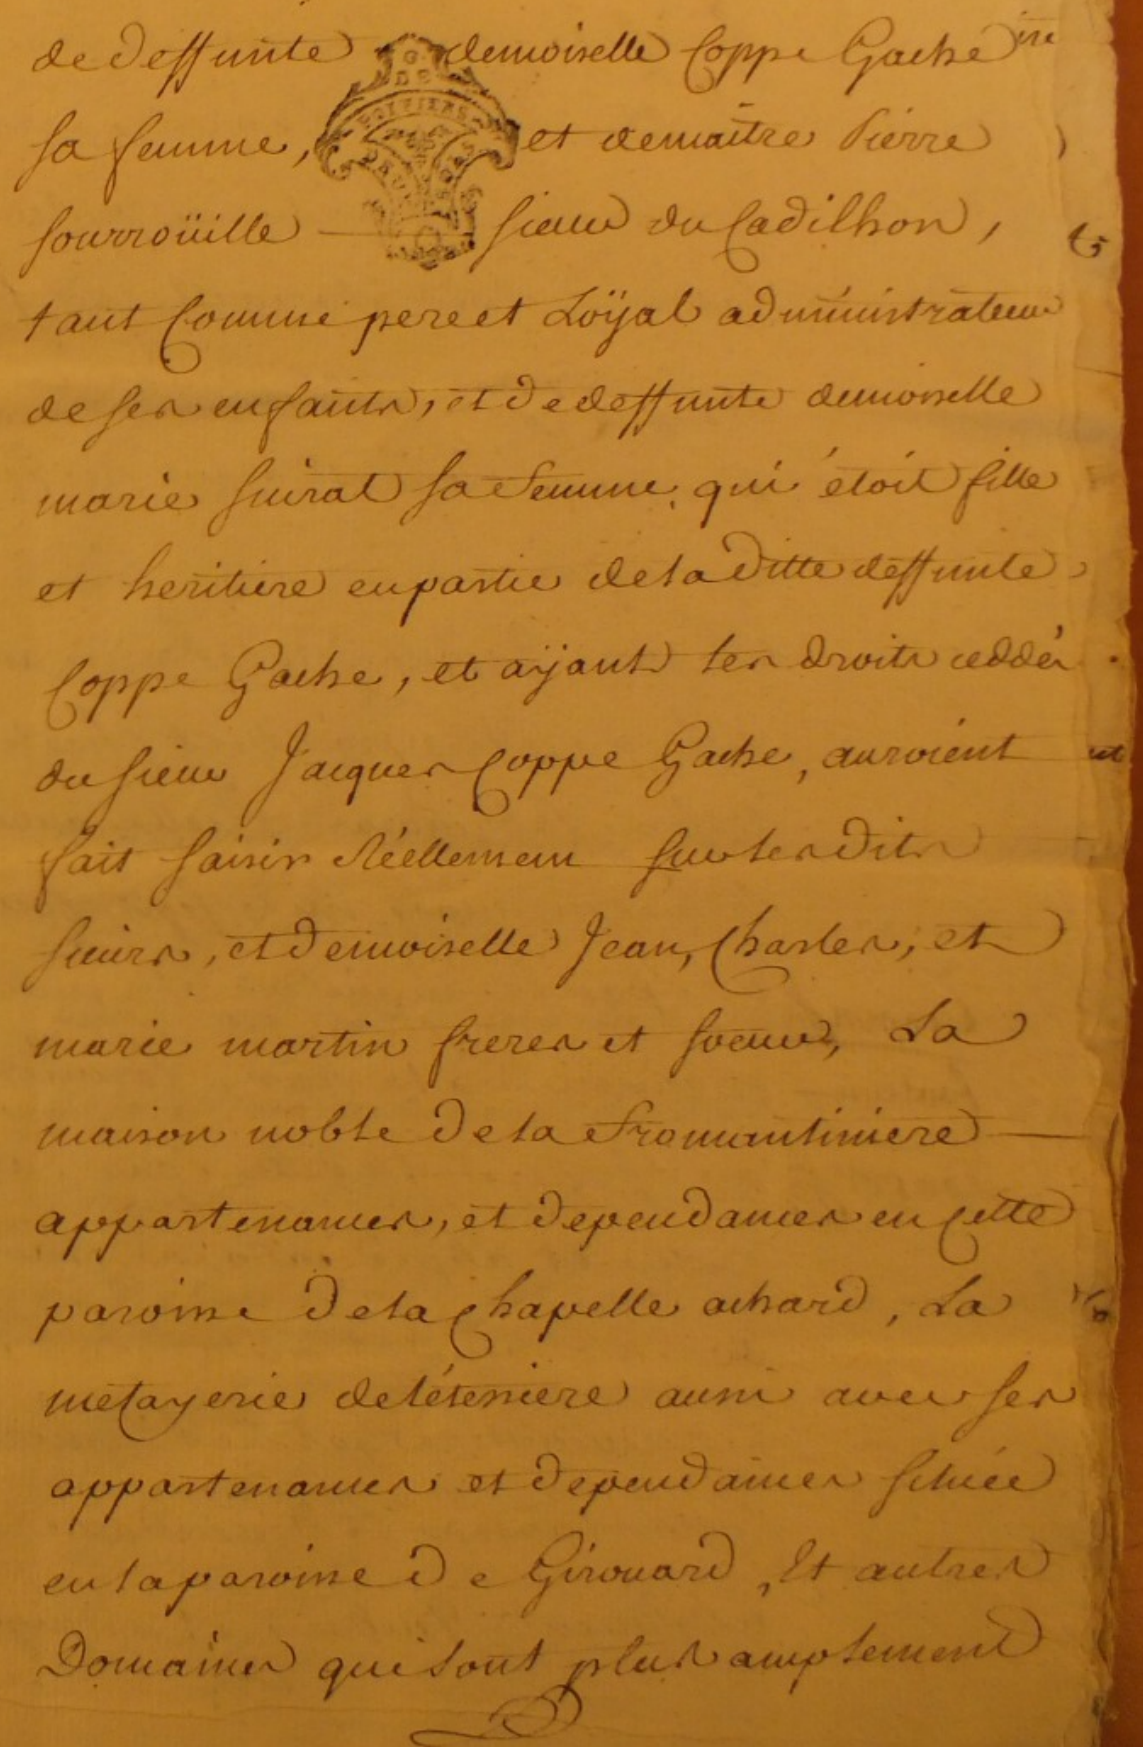 de deffunte demoiselle Coppe Gache
sa femme, et de maître Pierre
sourroüille sieur du Cadilhon,
tant Comme pere et Loÿal administrateur
de ses enfants, et de deffunte demoiselle
marie suirat sa femme, qui étoit fille
et heritiere en partie de la ditte deffunte
Coppe Gache, et aÿant les droits ceddés
du sieur Jacques Coppe Gache, auroient
fait saisir Réellement sur les dits
sieurs, et demoiselle Jean, Charles, et
marie martin freres et soeur, La
maison noble de la Fromantiniere
appartenances, et dependances en Cette
paroisse de la Chapelle achard, La
metayerie de l'étesniere aussi avec ses
appartenances et dependances scituée
en la paroisse de Girouard, Et autres
Domaines qui sont plus amplement